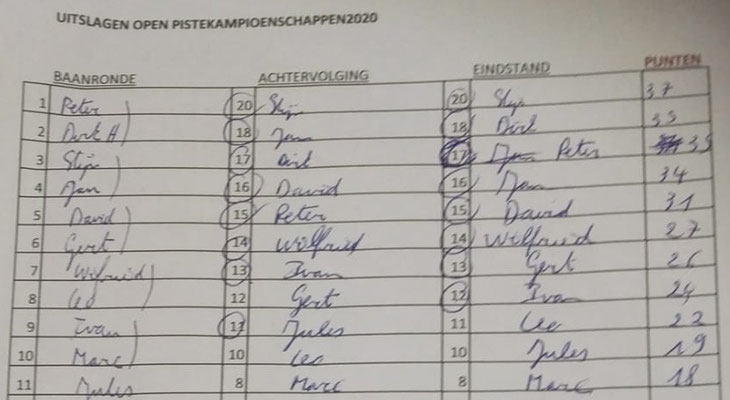 UITSLAGEN OPEN PISTEKAMPIOENSCHAPPEN2020
BAANRONDE ACHTERVOLGING EINDSTAND PUNTEN
1 Peter 20 Stijn 20 Stijn 37
2 Dirk H 18 Jan 18 Dirk 35
3 Stijn 17 Dirk 17 Jan Peter 35
4 Jan 16 David 16 Jan 34
5 David 15 Peter 15 David 31
6 Gert 14 Wilfried 14 Wilfried 27
7 Wilfried 13 Ivan 13 Gert 26
8 Leo 12 Gert 12 Ivan 24
9 Ivan 11 Jules 11 Leo 22
10 Marc 10 Leo 10 Jules 19
11 Jules 8 Marc 8 Marc 18